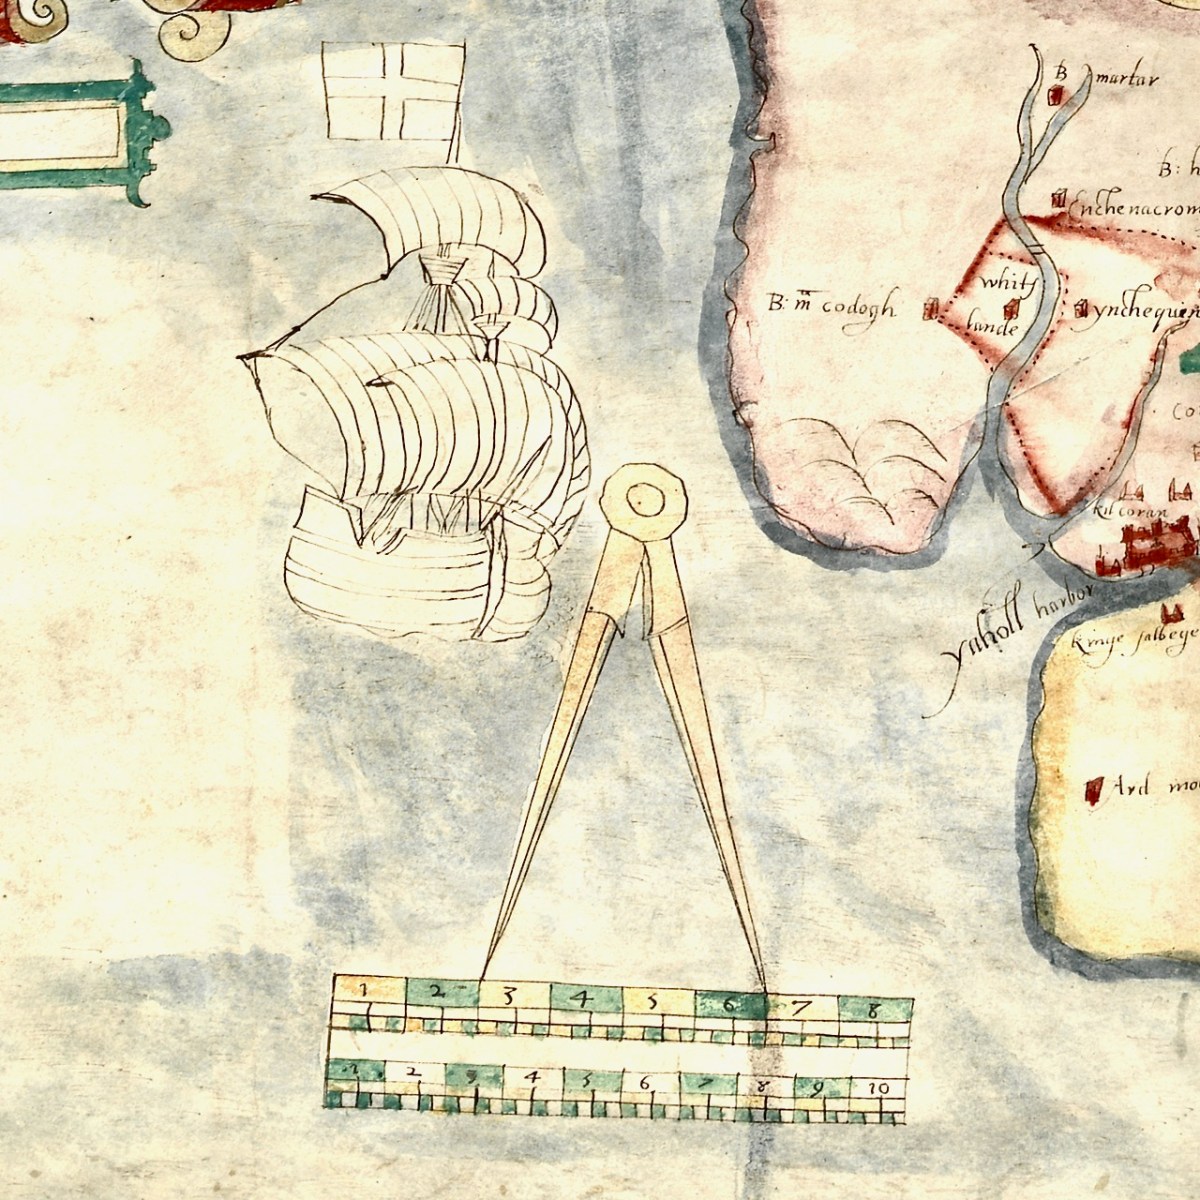 B martar
B: h
Enchenacrom
whits
B: m codogh
lande
ynchequin
Co
kilcoran
yaholl harbor
kinge salbege
Ard mo
1 2 3 4 5 6 7 8
1 2 3 4 5 6 7 8 9 10